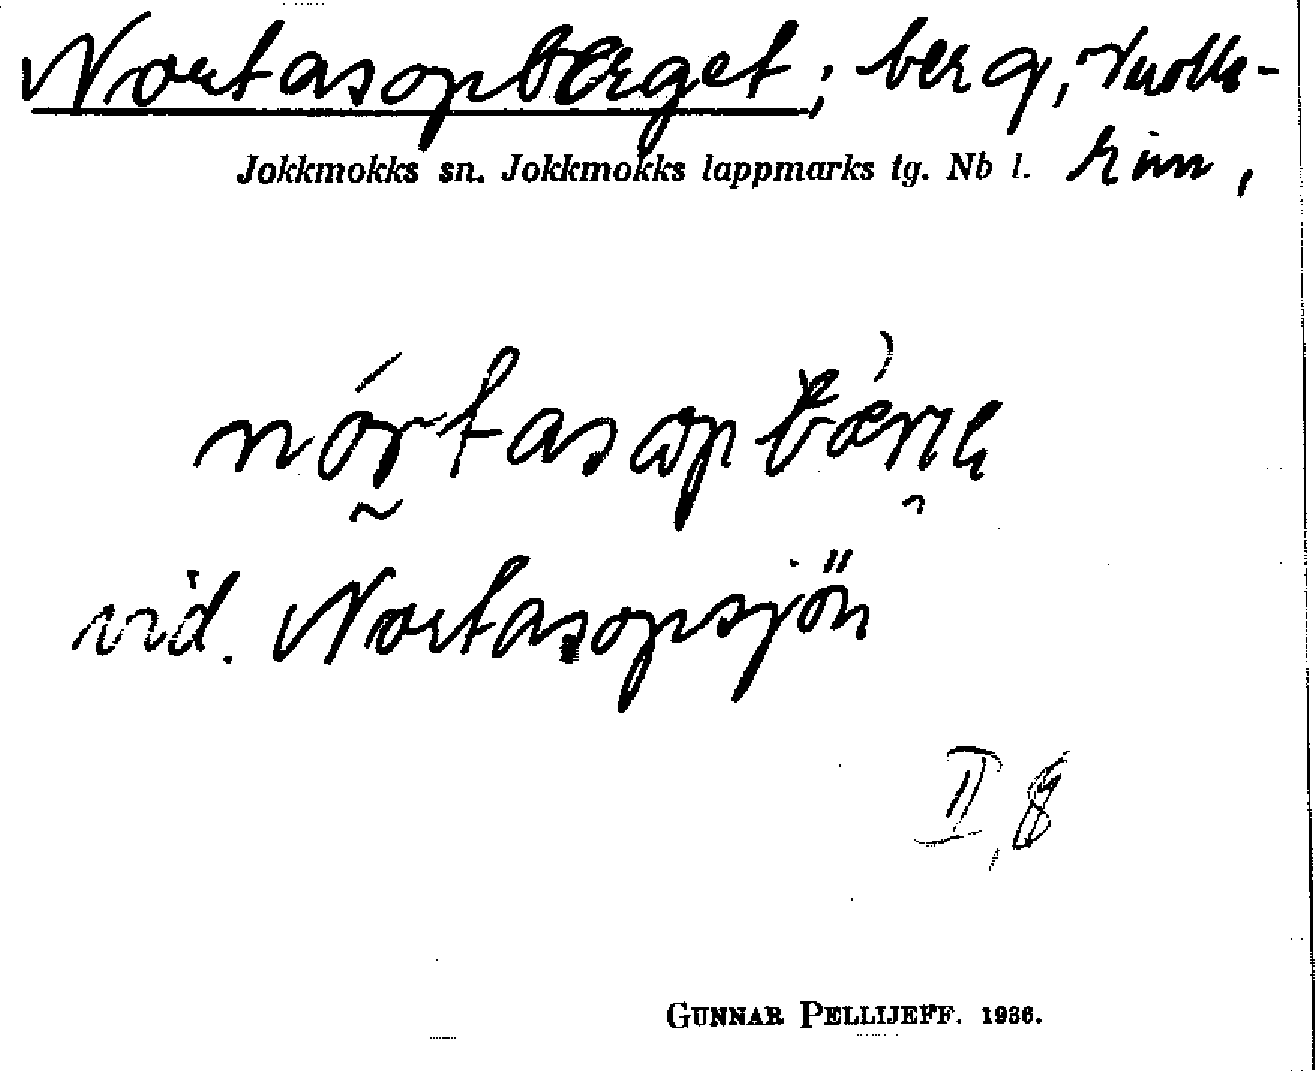 Nortasopberget; berg, Vuolle-
Jokkmokks sn. Jokkmokks lappmarks tg. Nb l. rim,
nórtasopbærje
vid. Nortasopsjön
II, 8
GUNNAR PELLIJEFF. 1936.